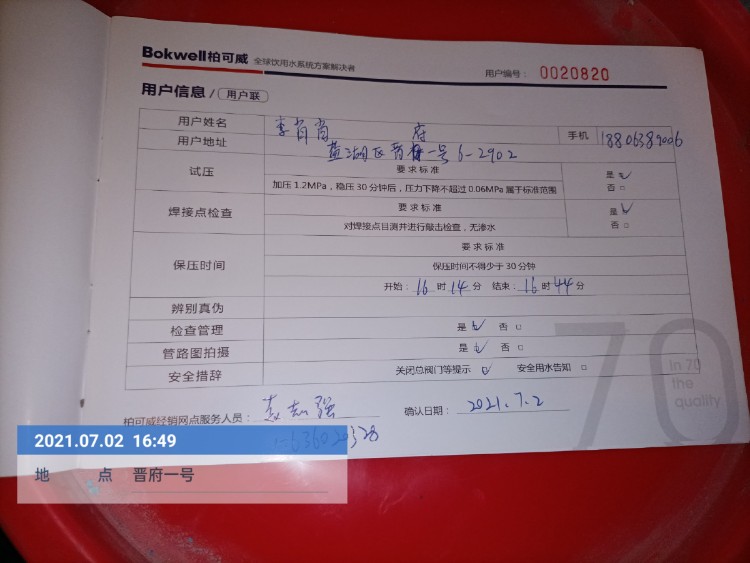 Bokwell柏可威 全球饮用水系统方案解决者
用户编号: 0020820
用户信息/ 用户联
用户姓名 李肖肖 手机 18806389006
用户地址 府 一号6-2902
试压 要求标准 是 ✓
加压1.2MPa，稳压30分钟后，压力下降不超过0.06MPa属于标准范围 否 □
焊接点检查 要求标准 是 ✓
对焊接点目测并进行敲击检查，无渗水 否 □
保压时间 要求标准
保压时间不得少于30分钟
开始: 16 时 14 分 结束: 16 时 44 分
辨别真伪
检查管理 是 ✓ 否 □
管路图拍摄 是 ✓ 否 □
安全措辞 关闭总阀门等提示 ✓ 安全用水告知 □
70
in 70
the
quality
柏可威经销网点服务人员: 志强 确认日期: 2021.7.2
2021.07.02 16:49
地 点 晋府一号